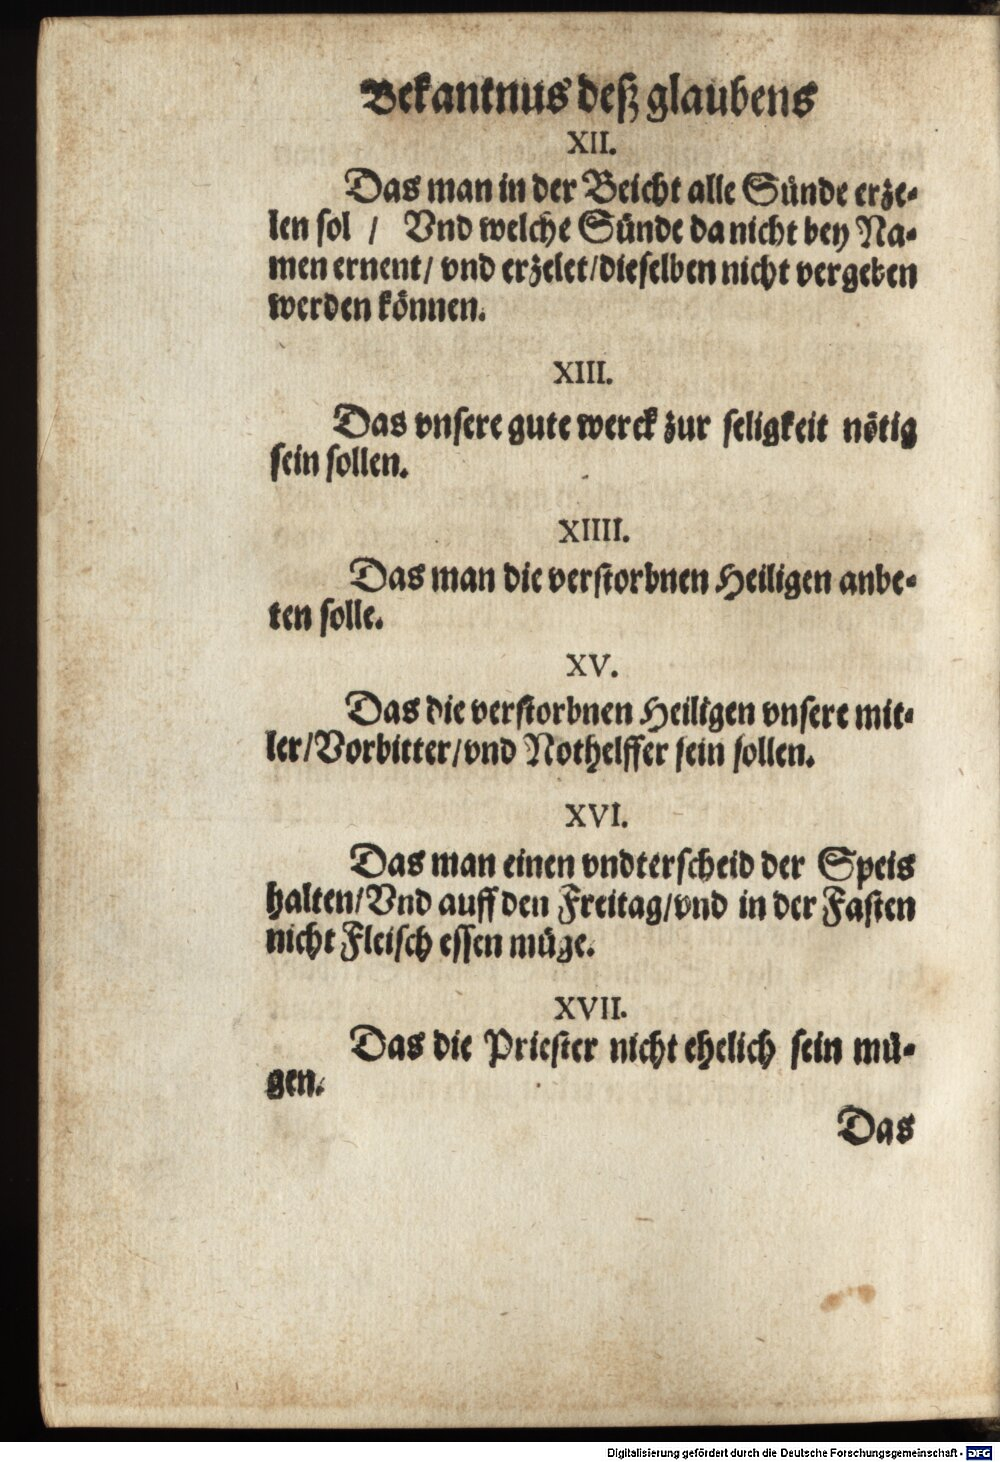 Bekantnus deß glaubens
XII.
Das man in der Beicht alle Sünde erze-
len sol / Vnd welche Sünde da nicht bey Na-
men ernent/ vnd erzelet/dieselben nicht vergeben
werden können.
XIII.
Das vnsere gute werck zur seligkeit nötig
sein sollen.
XIIII.
Das man die verstorbnen Heiligen anbe-
ten solle.
XV.
Das die verstorbnen Heiligen vnsere mit-
ler/Vorbitter/vnd Nothelffer sein sollen.
XVI.
Das man einen vndterscheid der Speis
halten/Vnd auff den Freitag/vnd in der Fasten
nicht Fleisch essen müge.
XVII.
Das die Priester nicht ehelich sein mü-
gen.
Das
Digitalisierung gefördert durch die Deutsche Forschungsgemeinschaft - DFG